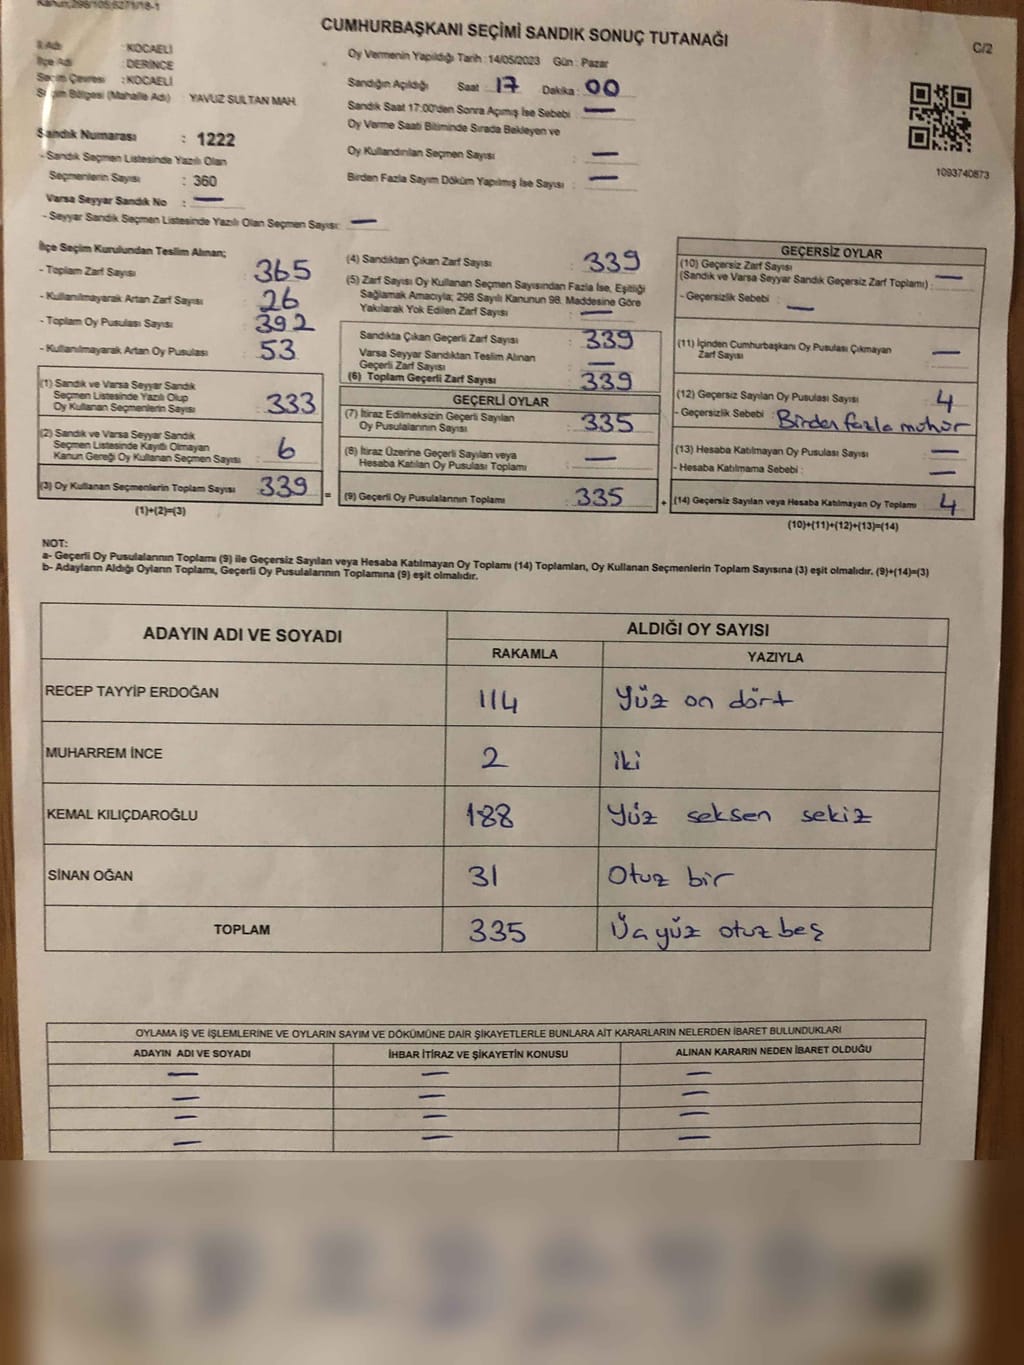 Kanun;298/105;6271/18-1
CUMHURBAŞKANI SEÇİMİ SANDIK SONUÇ TUTANAĞI
C/2
İl Adı : KOCAELİ
İlçe Adı : DERİNCE
Seçim Çevresi : KOCAELİ
Seçim Bölgesi (Mahalle Adı) : YAVUZ SULTAN MAH.
Sandık Numarası : 1222
- Sandık Seçmen Listesinde Yazılı Olan
Seçmenlerin Sayısı : 360
Varsa Seyyar Sandık No : —
- Seyyar Sandık Seçmen Listesinde Yazılı Olan Seçmen Sayısı: —
Oy Vermenin Yapıldığı Tarih : 14/05/2023 Gün : Pazar
Sandığın Açıldığı Saat 17 Dakika : 00
Sandık Saat 17:00'den Sonra Açımış İse Sebebi : —
Oy Verme Saati Bitiminde Sırada Bekleyen ve
Oy Kullandırılan Seçmen Sayısı : —
Birden Fazla Sayım Döküm Yapılmış İse Sayısı : —
1093740873
İlçe Seçim Kurulundan Teslim Alınan;
- Toplam Zarf Sayısı : 365
- Kullanılmayarak Artan Zarf Sayısı : 26
- Toplam Oy Pusulası Sayısı : 392
- Kullanılmayarak Artan Oy Pusulası : 53
(1) Sandık ve Varsa Seyyar Sandık
Seçmen Listesinde Yazılı Olup
Oy Kullanan Seçmenlerin Sayısı : 333
(2) Sandık ve Varsa Seyyar Sandık
Seçmen Listesinde Kayıtlı Olmayan
Kanun Gereği Oy Kullanan Seçmen Sayısı : 6
(3) Oy Kullanan Seçmenlerin Toplam Sayısı : 339 =
(1)+(2)=(3)
(4) Sandıktan Çıkan Zarf Sayısı : 339
(5) Zarf Sayısı Oy Kullanan Seçmen Sayısından Fazla İse, Eşitliği
Sağlamak Amacıyla; 298 Sayılı Kanunun 98. Maddesine Göre
Yakılarak Yok Edilen Zarf Sayısı : —
Sandıkta Çıkan Geçerli Zarf Sayısı : 339
Varsa Seyyar Sandıktan Teslim Alınan
Geçerli Zarf Sayısı : —
(6) Toplam Geçerli Zarf Sayısı : 339
GEÇERLİ OYLAR
(7) İtiraz Edilmeksizin Geçerli Sayılan
Oy Pusulalarının Sayısı : 335
(8) İtiraz Üzerine Geçerli Sayılan veya
Hesaba Katılan Oy Pusulası Toplamı : —
(9) Geçerli Oy Pusulalarının Toplamı : 335 +
GEÇERSİZ OYLAR
(10) Geçersiz Zarf Sayısı
(Sandık ve Varsa Seyyar Sandık Geçersiz Zarf Toplamı) : —
- Geçersizlik Sebebi : —
(11) İçinden Cumhurbaşkanı Oy Pusulası Çıkmayan
Zarf Sayısı : —
(12) Geçersiz Sayılan Oy Pusulası Sayısı : 4
- Geçersizlik Sebebi : Birden fazla mühür
(13) Hesaba Katılmayan Oy Pusulası Sayısı : —
- Hesaba Katılmama Sebebi : —
(14) Geçersiz Sayılan veya Hesaba Katılmayan Oy Toplamı : 4
(10)+(11)+(12)+(13)=(14)
NOT:
a- Geçerli Oy Pusulalarının Toplamı (9) ile Geçersiz Sayılan veya Hesaba Katılmayan Oy Toplamı (14) Toplamları, Oy Kullanan Seçmenlerin Toplam Sayısına (3) eşit olmalıdır. (9)+(14)=(3)
b- Adayların Aldığı Oyların Toplamı, Geçerli Oy Pusulalarının Toplamına (9) eşit olmalıdır.
ADAYIN ADI VE SOYADI
ALDIĞI OY SAYISI
RAKAMLA YAZIYLA
RECEP TAYYİP ERDOĞAN 114 Yüz on dört
MUHARREM İNCE 2 iki
KEMAL KILIÇDAROĞLU 188 Yüz seksen sekiz
SİNAN OĞAN 31 Otuz bir
TOPLAM 335 Üç yüz otuz beş
OYLAMA İŞ VE İŞLEMLERİNE VE OYLARIN SAYIM VE DÖKÜMÜNE DAİR ŞİKAYETLERLE BUNLARA AİT KARARLARIN NELERDEN İBARET BULUNDUKLARI
ADAYIN ADI VE SOYADI İHBAR İTİRAZ VE ŞİKAYETİN KONUSU ALINAN KARARIN NEDEN İBARET OLDUĞU
— — —
— — —
— — —
— — —